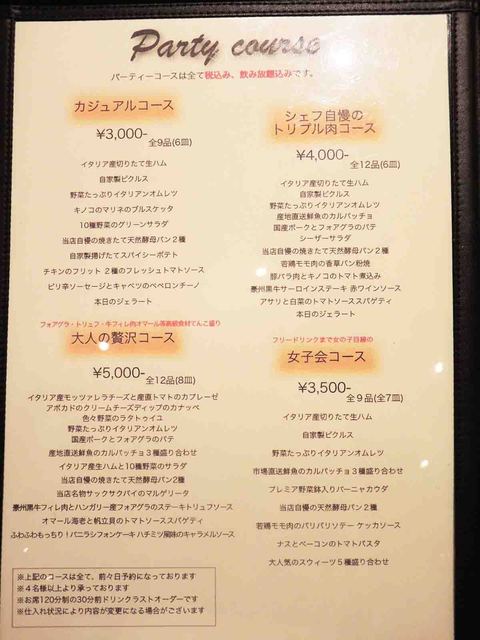 Party course
パーティーコースは全て税込み、飲み放題込みです。
カジュアルコース
¥3,000-
全9品(6皿)
イタリア産切りたて生ハム
自家製ピクルス
野菜たっぷりイタリアンオムレツ
キノコのマリネのブルスケッタ
10種野菜のグリーンサラダ
当店自慢の焼きたて天然酵母パン2種
自家製揚げたてスパイシーポテト
チキンのフリット 2種のフレッシュトマトソース
ピリ辛ソーセージとキャベツのペペロンチーノ
本日のジェラート
シェフ自慢の
トリプル肉コース
¥4,000-
全12品(6皿)
イタリア産切りたて生ハム
自家製ピクルス
野菜たっぷりイタリアンオムレツ
産地直送鮮魚のカルパッチョ
国産ポークとフォアグラのパテ
シーザーサラダ
当店自慢の焼きたて天然酵母パン2種
若鶏モモ肉の香草パン粉焼
豚バラ肉とキノコのトマト煮込み
豪州黒牛サーロインステーキ 赤ワインソース
アサリと白菜のトマトソーススパゲティ
本日のジェラート
フォアグラ・トリュフ・牛フィレ肉オマール等高級食材てんこ盛り
大人の贅沢コース
¥5,000-
全12品(8皿)
イタリア産モッツァレラチーズと産直トマトのカプレーゼ
アボカドのクリームチーズディップのカナッペ
色々野菜のラタトゥイユ
野菜たっぷりイタリアンオムレツ
国産ポークとフォアグラのパテ
産地直送鮮魚のカルパッチョ3種盛り合わせ
イタリア産生ハムと10種野菜のサラダ
当店自慢の焼きたて天然酵母パン2種
当店名物サックサクパイのマルゲリータ
豪州黒牛フィレ肉とハンガリー産フォアグラのステーキトリュフソース
オマール海老と帆立貝のトマトソーススパゲティ
ふわふわもっちり!バニラシフォンケーキ ハチミツ風味のキャラメルソース
フリードリンクまで女の子目線の
女子会コース
¥3,500-
全9品(全7皿)
イタリア産切りたて生ハム
自家製ピクルス
野菜たっぷりイタリアンオムレツ
市場直送鮮魚のカルパッチョ3種盛り合わせ
プレミア野菜鉢入りバーニャカウダ
当店自慢の天然酵母パン2種
若鶏モモ肉のパリパリソテー ケッカソース
ナスとベーコンのトマトパスタ
大人気のスウィーツ5種盛り合わせ
※上記のコースは全て、前々日予約になっております
※4名様以上より承っております
※お席120分制の30分前ドリンクラストオーダーです
※仕入れ状況により内容が変更になる場合がございます